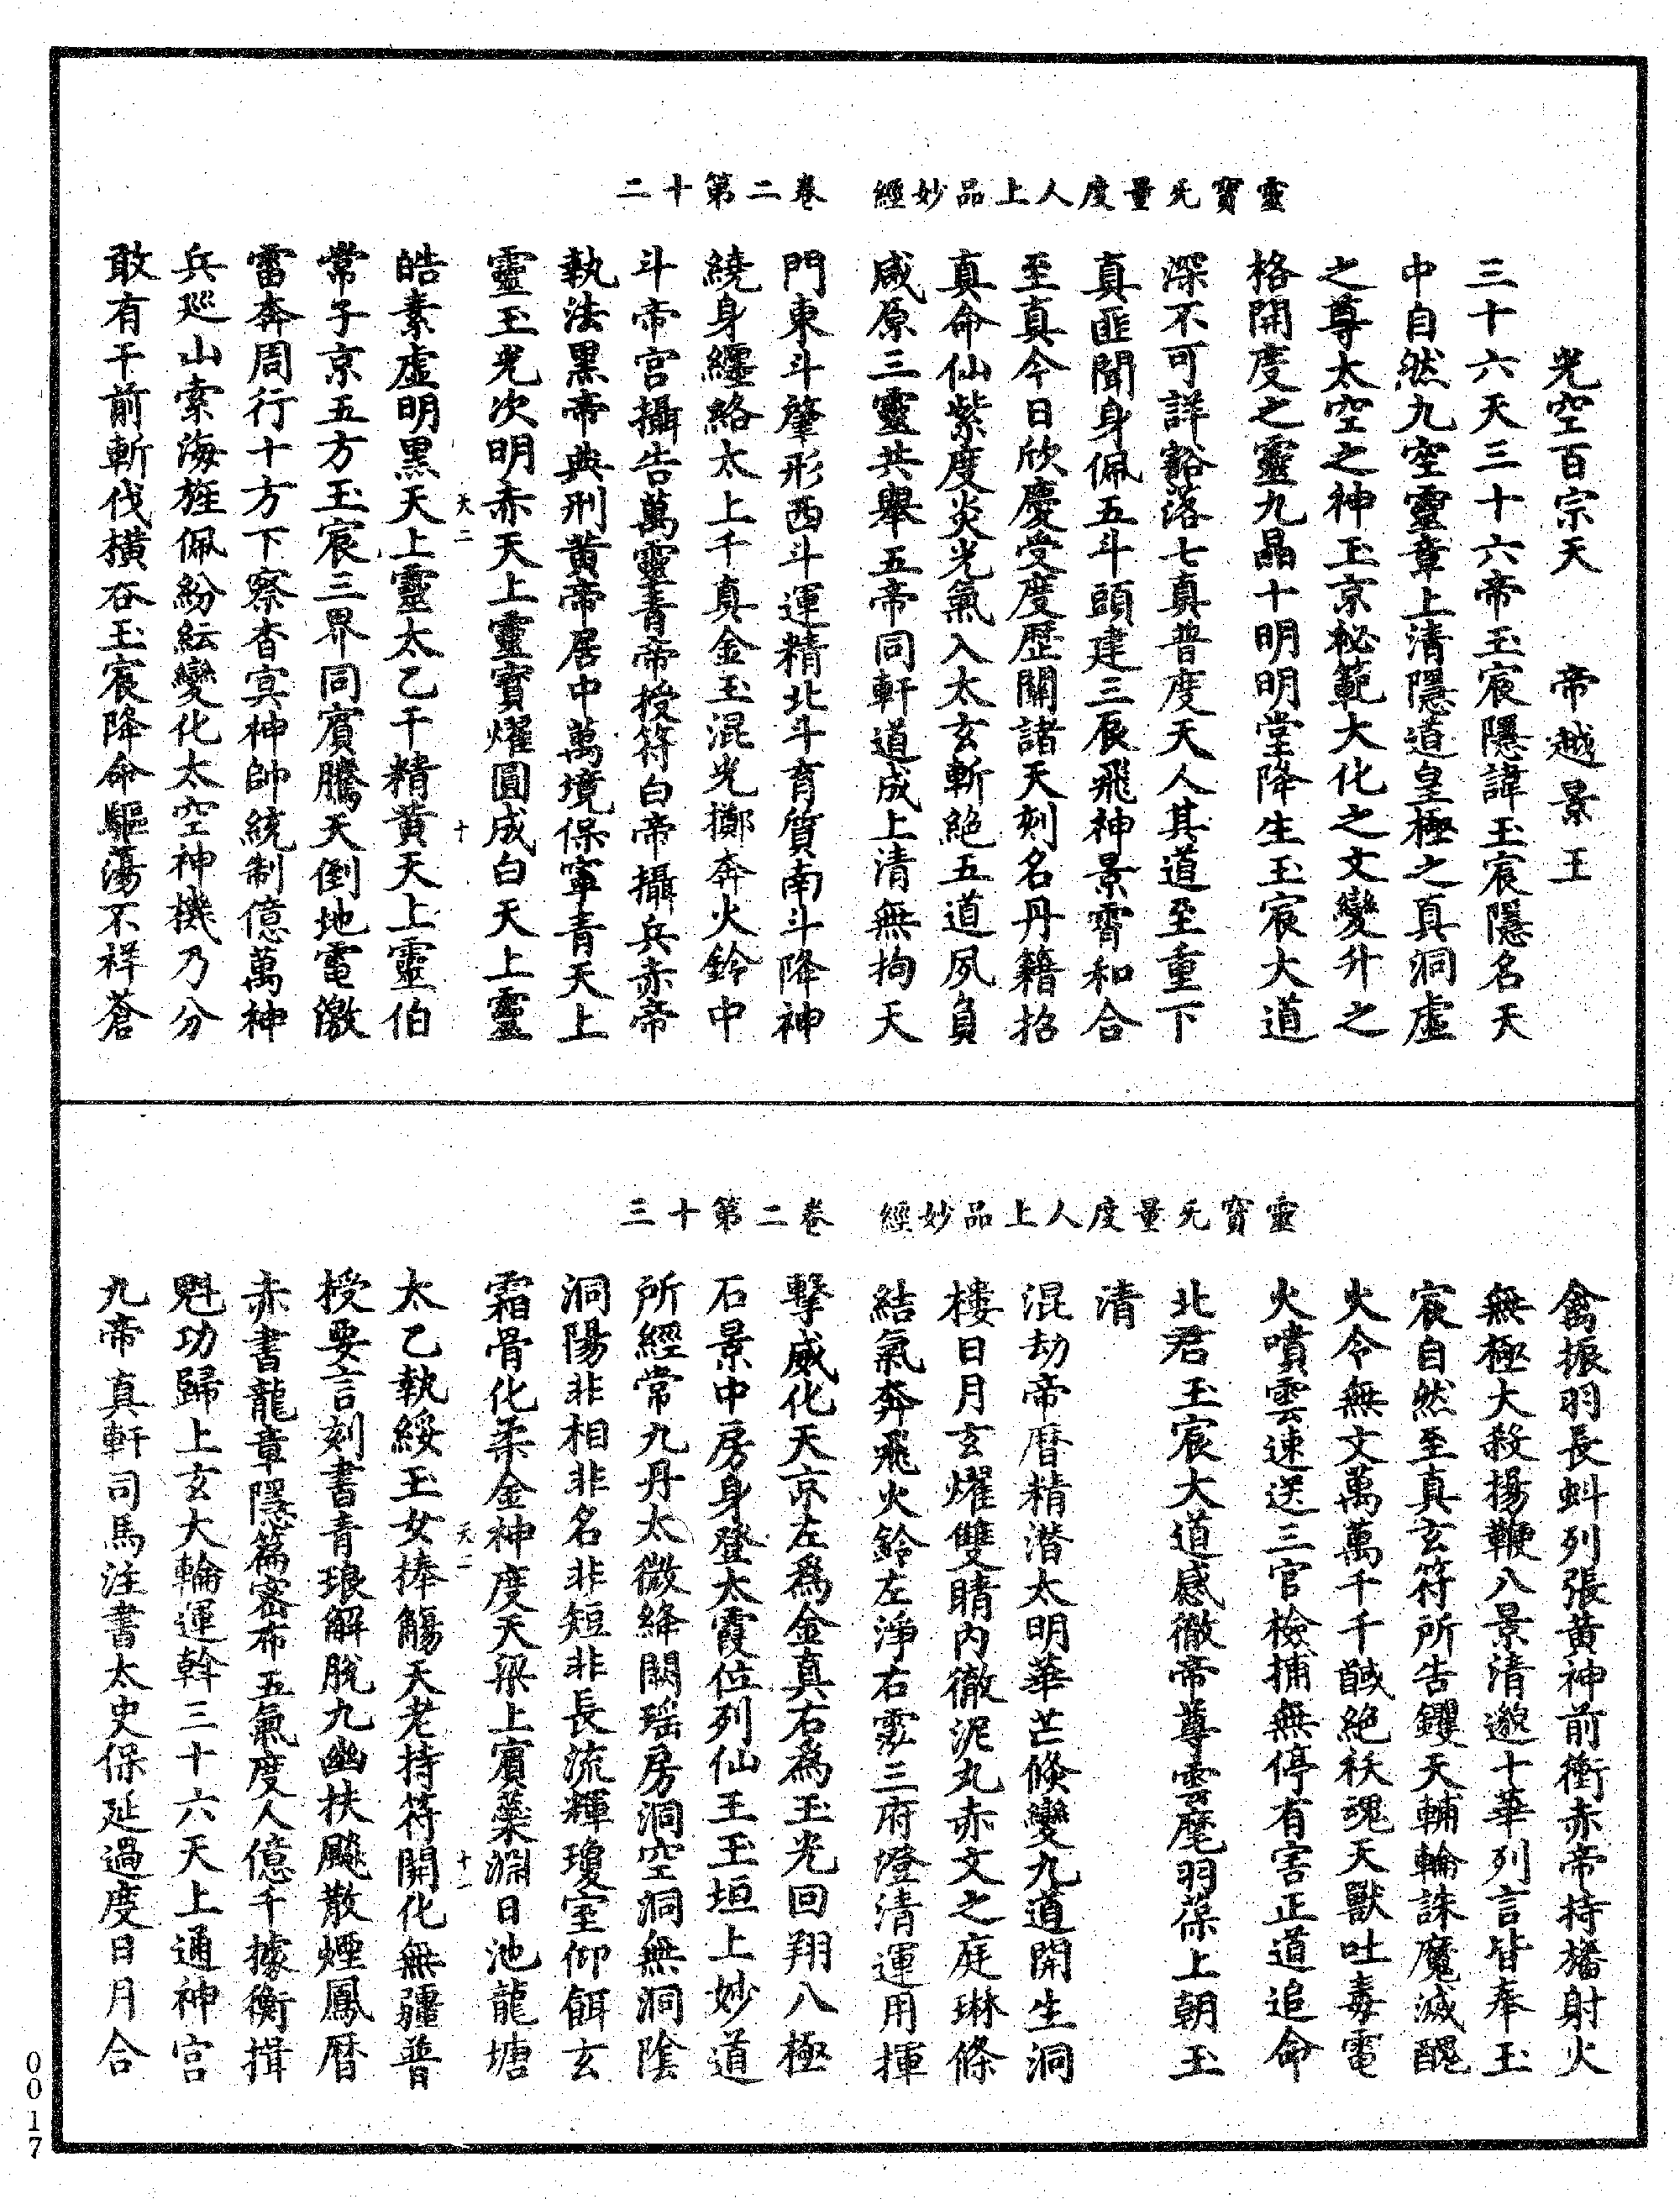 靈寶无量度人上品妙經　卷二第十二
光空百宗天　帝越景王
三十六天三十六帝玉宸隱諱玉宸隱名天
中自然九空靈章上清隱道皇極之真洞虛
之尊太空之神玉京祕範大化之文變升之
格開度之靈九晶十明明堂降生玉宸大道
深不可詳豁落七真普度天人其道至重下
真匪聞身佩五斗頭建三辰飛神景霄和合
至真今日欣慶受度歷關諸天刻名丹籍招
真命仙紫度炎光氣入太玄斬絕五道夙負
咸原三靈共舉五帝同軒道成上清無拘天
門東斗肇形西斗運精北斗育質南斗降神
繞身纏絡太上千真金玉混光擲奔火鈴中
斗帝宮攝告萬靈青帝授符白帝攝兵赤帝
執法黑帝典刑黃帝居中萬境保寧青天上
靈玉光次明赤天上靈寶燿圓成白天上靈
天二　十
皓素虛明黑天上靈太乙干精黃天上靈伯
常子京五方玉宸三界同賓騰天倒地電激
雷奔周行十方下察杳冥神帥統制億萬神
兵巡山索海旌佩紛紜變化太空神機乃分
敢有干前斬伐橫吞玉宸降命驅蕩不祥蒼
靈寶无量度人上品妙經　卷二第十三
禽振羽長蚪列張黃神前衝赤帝持旛射火
無極大殺揚鞭八景清邀十華列言皆奉玉
宸自然至真玄符所告钁天輔輪誅魔滅醜
火令無文萬萬千千馘絕袄魂天獸吐毒電
火噴雲速送三官檢捕無停有害正道追命
北君玉宸大道感徹帝尊雲麾羽葆上朝玉
清
混劫帝曆精潛太明華芒倏變九道開生洞
樓日月玄燿雙睛內徹泥丸赤文之庭琳條
結氣奔飛火鈴左淨右雰三府澄清運用揮
擊威化天京左為金真右為玉光回翔八極
石景中房身登太霞位列仙王玉垣上妙道
所經常九丹太微絳闕瑤房洞空洞無洞陰
洞陽非相非名非短非長流輝瓊室仰餌玄
霜骨化柔金神度天梁上賓蘂淵日池龍塘
天二　十一
太乙執綏玉女捧觴天老持符開化無疆普
授要言刻書青琅解脫九幽扶飈散煙鳳曆
赤書龍章隱篇密布五氣度人億千據衡揖
魁功歸上玄大輪運斡三十六天上通神宮
九帝真軒司馬注書太史保延過度日月合
0017